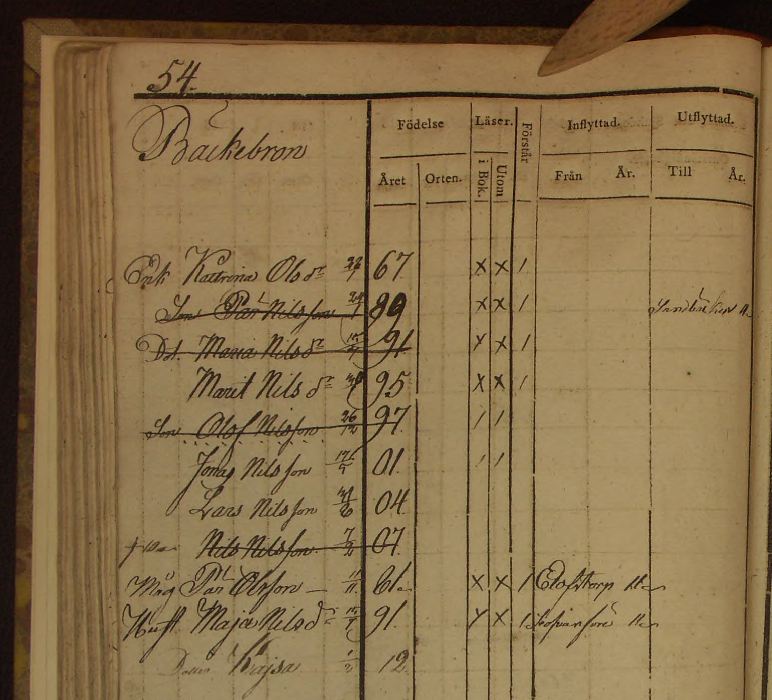 54.
Backebron
Födelse Läser. Förstår Inflyttad. Utflyttad.
Året Orten. i Bok. Utom Från År. Till År.
Enk Kattrina Olsdr 67 x x 1
Son Pär Nilsson 89 x x 1
Dot. Maria Nilsdr 91 x x 1
Marit Nilsdr 95 x x 1
Son Olof Nilsson 26/12 97 1 1
Jonas Nilsson 01 1 1
Lars Nilsson 04
Nils Nilsson 7/2 07
Måg Pär Olsson 11/11 61 x x 1 Elofstorp
Hust Maja Nilsdr 91. x x 1
Dotter Kajsa 1/2 12